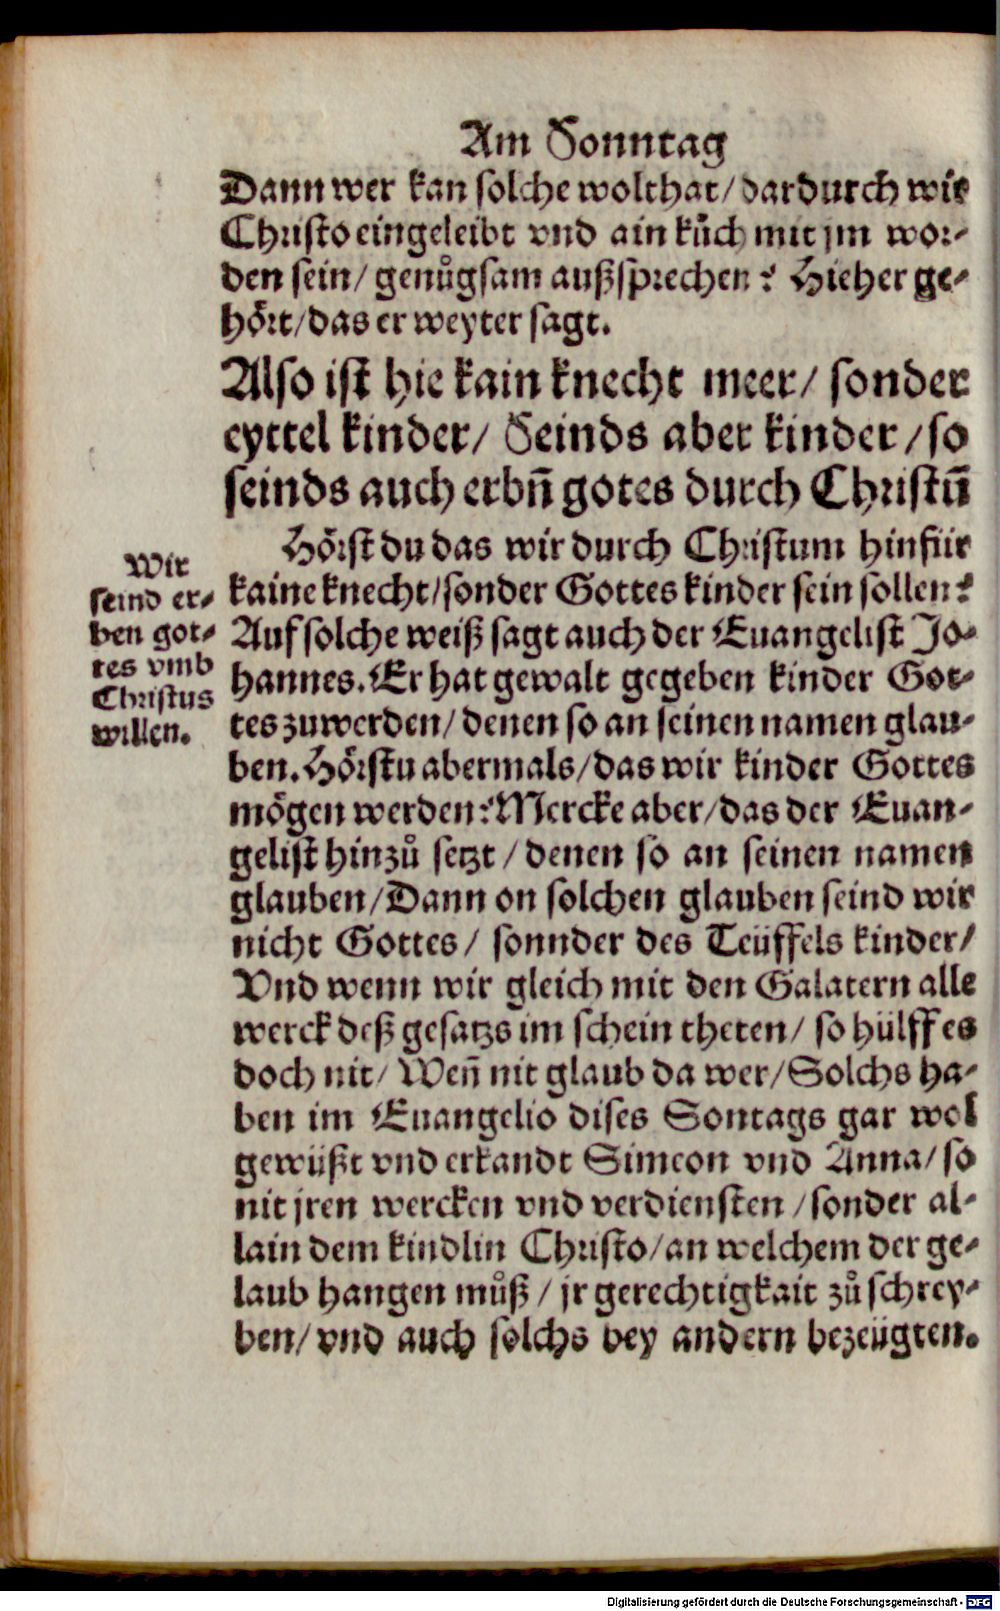 Am Sonntag
Dann wer kan solche wolthat/ dardurch wir
Christo eingeleibt vnd ain kůch mit jm wor-
den sein/ genůgsam außsprechen? Hieher ge-
hört/ das er weyter sagt.
Also ist hie kain knecht meer/ sonder
eyttel kinder/ Seinds aber kinder/ so
seinds auch erbn̄ gotes durch Christū
Hörst du das wir durch Christum hinfür
kaine knecht/ sonder Gottes kinder sein sollen?
Auf solche weiß sagt auch der Euangelist Jo-
hannes. Er hat gewalt gegeben kinder Got-
tes zuwerden/ denen so an seinen namen glau-
ben. Hörstu abermals/ das wir kinder Gottes
mögen werden? Mercke aber/ das der Euan-
gelist hinzů setzt/ denen so an seinen namen
glauben/ Dann on solchen glauben seind wir
nicht Gottes/ sonnder des Teüffels kinder/
Vnd wenn wir gleich mit den Galatern alle
werck deß gesatzs im schein theten/ so hülff es
doch nit/ Wen̄ nit glaub da wer/ Solchs ha-
ben im Euangelio dises Sontags gar wol
gewüßt vnd erkandt Simeon vnd Anna/ so
nit jren wercken vnd verdiensten/ sonder al-
lain dem kindlin Christo/ an welchem der ge-
laub hangen můß/ jr gerechtigkait zů schrey-
ben/ vnd auch solchs bey andern bezeügten.
Wir
seind er-
ben got-
tes vmb
Christus
willen.
Digitalisierung gefördert durch die Deutsche Forschungsgemeinschaft - DFG